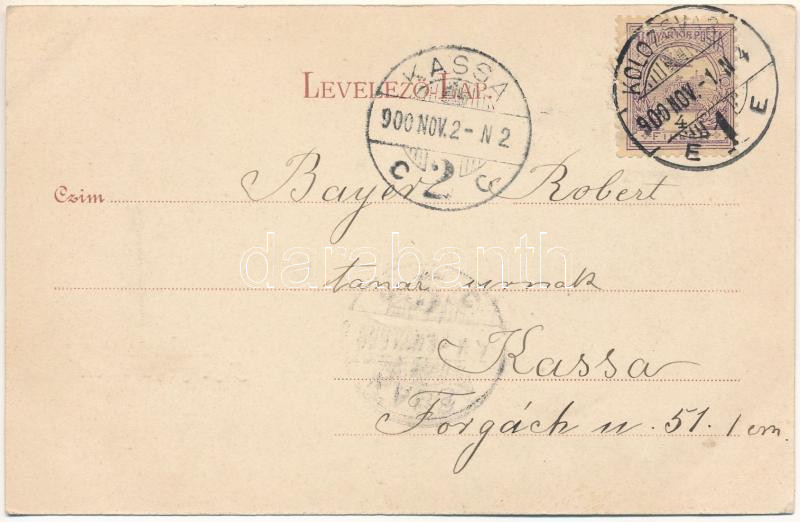 LEVELEZŐ-LAP.
MAGYAR KIR. POSTA
KOLOZSVÁR
900 NOV. -1. N 4
E 1 E
KASSA
900 NOV. 2 - N 2
C 2 C
Czim Bayer Robert
darabanth
tanár urnak
Kassa
Forgách u. 51. 1 em.